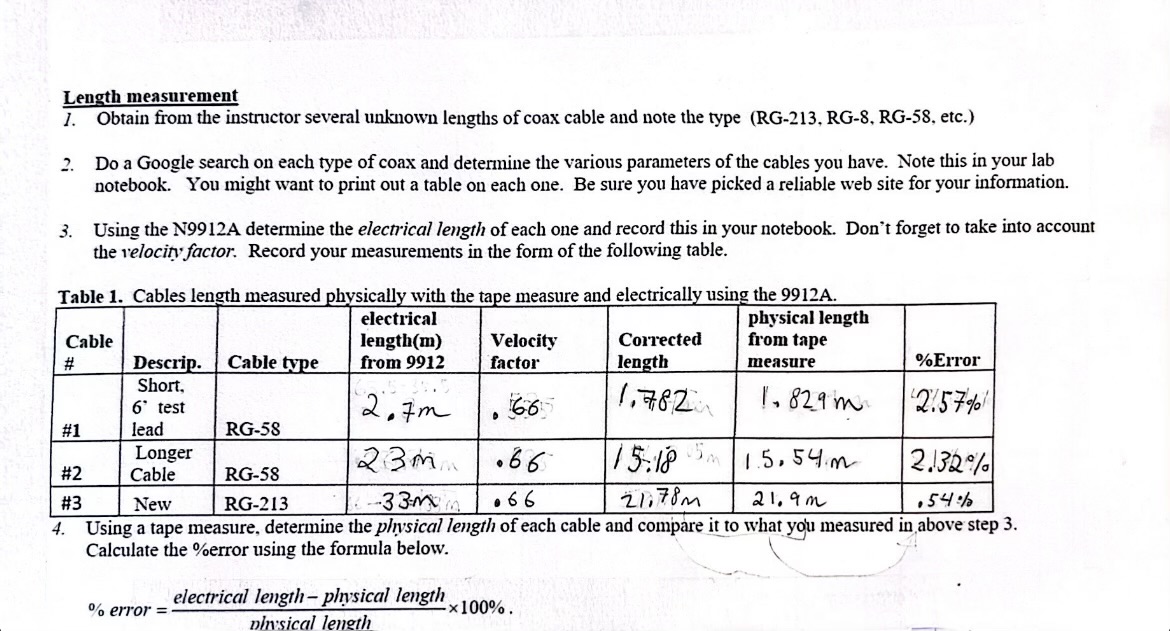 Length measurement
1. Obtain from the instructor several unknown lengths of coax cable and note the type (RG-213, RG-8, RG-58, etc.)
2. Do a Google search on each type of coax and determine the various parameters of the cables you have. Note this in your lab
notebook. You might want to print out a table on each one. Be sure you have picked a reliable web site for your information.
3. Using the N9912A determine the electrical length of each one and record this in your notebook. Don't forget to take into account
the velocity factor. Record your measurements in the form of the following table.
Table 1. Cables length measured physically with the tape measure and electrically using the 9912A.
Cable # Descrip. Cable type electrical length(m) from 9912 Velocity factor Corrected length physical length from tape measure %Error
#1 Short, 6' test lead RG-58 2.7m .66 1.782 1.829m 2.57%
#2 Longer Cable RG-58 23m .66 15.18 15.54m 2.32%
#3 New RG-213 33m .66 21.78m 21.9m .54%
4. Using a tape measure, determine the physical length of each cable and compare it to what you measured in above step 3.
Calculate the %error using the formula below.
% error = electrical length – physical length / physical length ×100%.